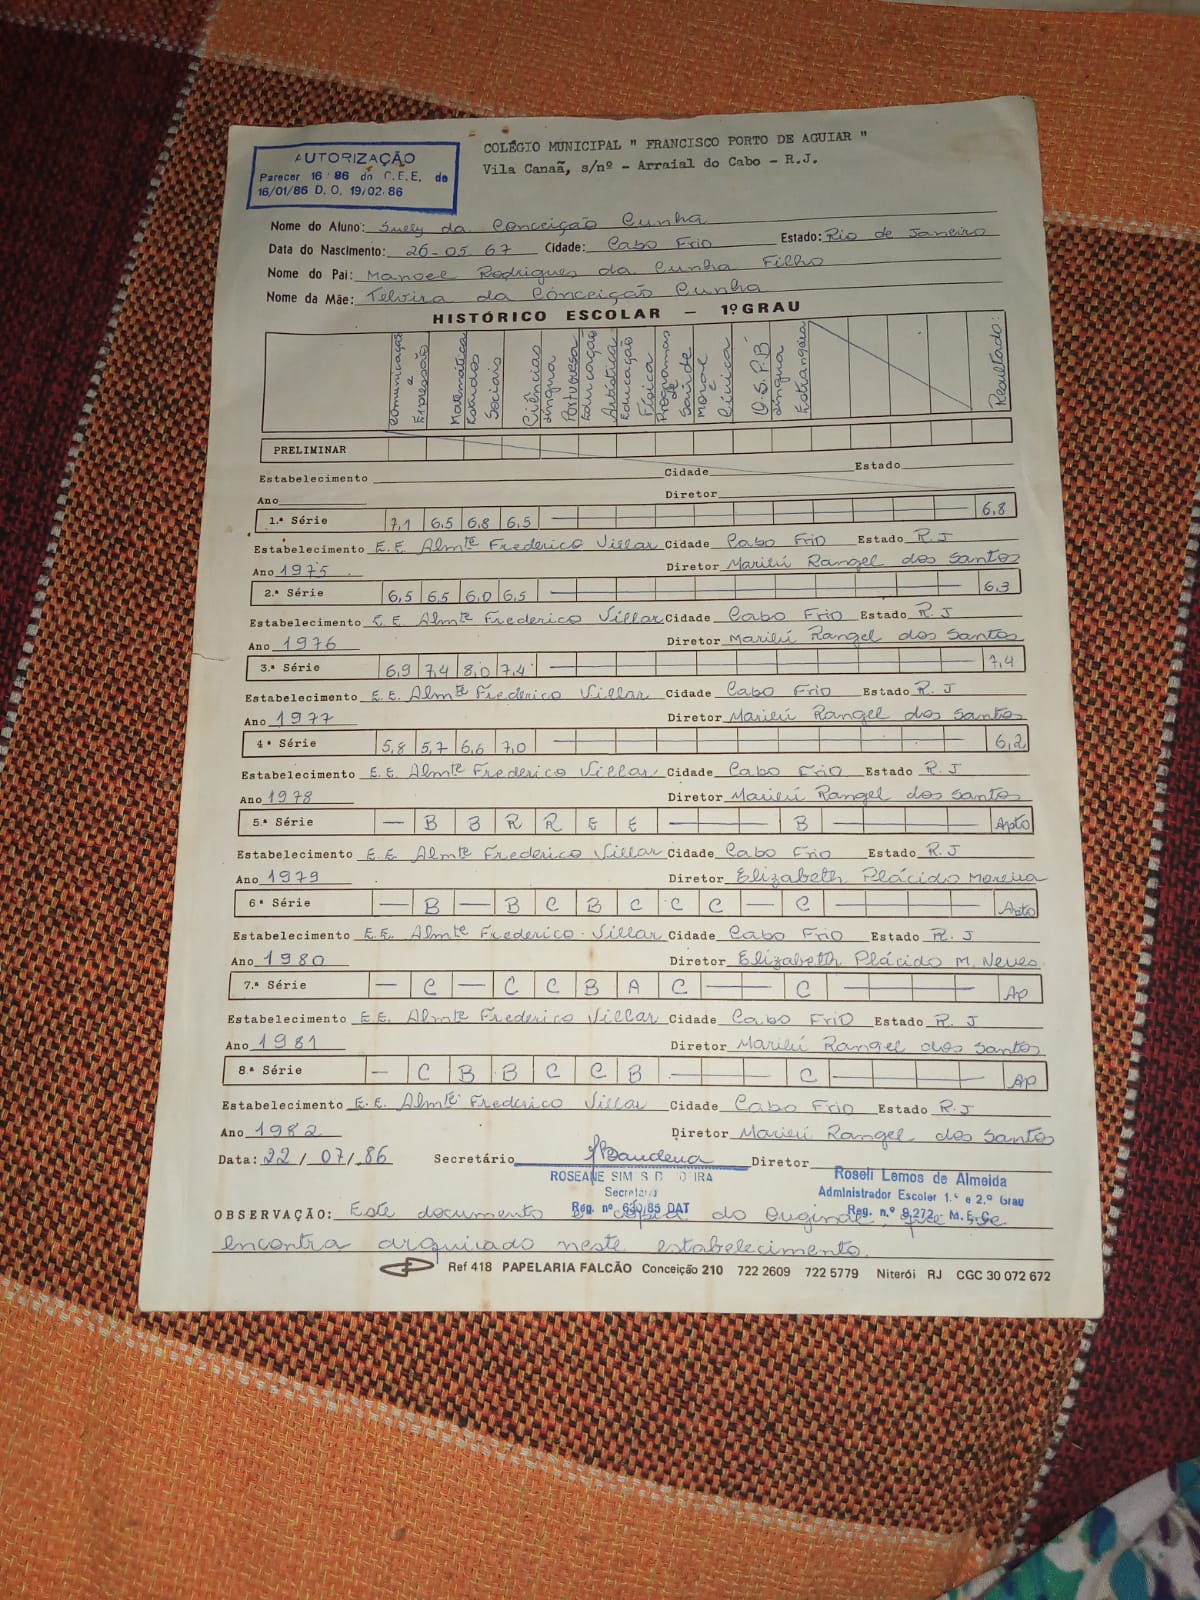 COLÉGIO MUNICIPAL " FRANCISCO PORTO DE AGUIAR "
Vila Canaã, s/nº - Arraial do Cabo - R.J.
AUTORIZAÇÃO
Parecer 16 86 do C.E.E. de
16/01/86 D. O. 19/02.86
Nome do Aluno: Suely da Conceição Cunha
Data do Nascimento: 26-05 67 Cidade: Cabo Frio Estado: Rio de Janeiro
Nome do Pai: Manoel Rodrigues da Cunha Filho
Nome da Mãe: Telvira da Conceição Cunha
HISTÓRICO ESCOLAR — 1º GRAU
Comunicação e Expressão
Matemática
Estudos Sociais
Ciências
Língua Portuguesa
Educação Artística
Educação Física
Programas de Saúde
Moral e Cívica
O.S.P.B
Língua Estrangeira
Resultado:
PRELIMINAR
Estabelecimento Cidade Estado
Ano Diretor
1.ª Série 7,1 6,5 6,8 6,5 — 6,8
Estabelecimento E.E. Almte Frederico Villar Cidade Cabo Frio Estado R.J
Ano 1975 Diretor Marilú Rangel dos Santos
2.ª Série 6,5 6,5 6,0 6,5 — 6,3
Estabelecimento E.E. Almte Frederico Villar Cidade Cabo Frio Estado R.J
Ano 1976 Diretor Marilú Rangel dos Santos
3.ª Série 6,9 7,4 8,0 7,4 — 7,4
Estabelecimento E.E. Almte Frederico Villar Cidade Cabo Frio Estado R.J
Ano 1977 Diretor Marilú Rangel dos Santos
4ª Série 5,8 5,7 6,6 7,0 — 6,2
Estabelecimento E.E. Almte Frederico Villar Cidade Cabo Frio Estado R.J
Ano 1978 Diretor Marilú Rangel dos Santos
5.ª Série — B B R R E E — B — Apto
Estabelecimento E.E. Almte Frederico Villar Cidade Cabo Frio Estado R.J
Ano 1979 Diretor Elizabeth Plácido Moreira
6ª Série — B — B C B C C C — C — Apto
Estabelecimento E.E. Almte Frederico Villar Cidade Cabo Frio Estado R.J
Ano 1980 Diretor Elizabeth Plácido M. Neves
7.ª Série — C — C C B A C — C — Ap
Estabelecimento E.E. Almte Frederico Villar Cidade Cabo Frio Estado R.J
Ano 1981 Diretor Marilú Rangel dos Santos
8.ª Série — C B B C C B — C — Ap
Estabelecimento E.E. Almte Frederico Villar Cidade Cabo Frio Estado R.J
Ano 1982 Diretor Marilú Rangel dos Santos
Data: 22/07/86 Secretário Diretor
ROSEANE
Secretária
Reg. nº 630/85 DAT
Roseli Lemos de Almeida
Administrador Escolar 1.º e 2.º Grau
Reg. n.º 9.272 M.E.C.
OBSERVAÇÃO: Este documento é cópia do original, que se
encontra arquivado neste estabelecimento.
Ref 418 PAPELARIA FALCÃO Conceição 210 722 2609 722 5779 Niterói RJ CGC 30 072 672